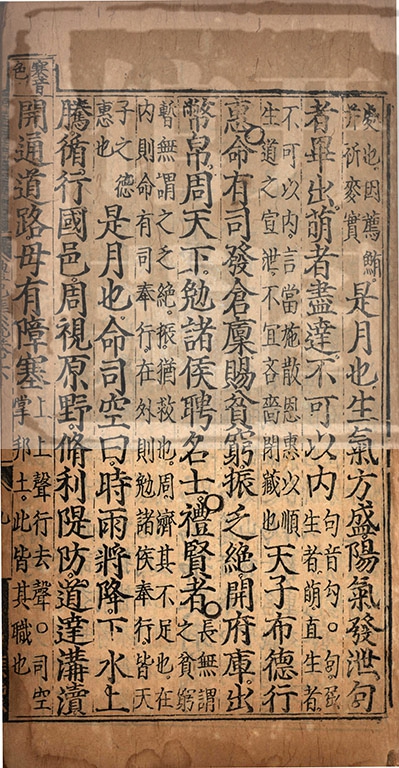 處也因薦鮪
并祈麥實
是月也生氣方盛陽氣發泄句
者畢出萌者盡達不可以内
句音勾○句屈
生者萌直生者
不可以内言當施散恩惠以順
生道之宣泄不宜吝嗇閉藏也
天子布德行
惠命有司發倉廩賜貧窮振乏絕開府庫出
幣帛周天下勉諸侯聘名士禮賢者
長無謂
之貧窮
暫無謂之乏絕振猶救也周濟其不足也在
内則命有司奉行在外則勉諸侯奉行皆天
子之德
惠也
是月也命司空曰時雨將降下水上
騰循行國邑周視原野脩利隄防道達溝瀆
開通道路毋有障塞
上上聲行去聲○司空
掌邦土此皆其職也
塞音
色